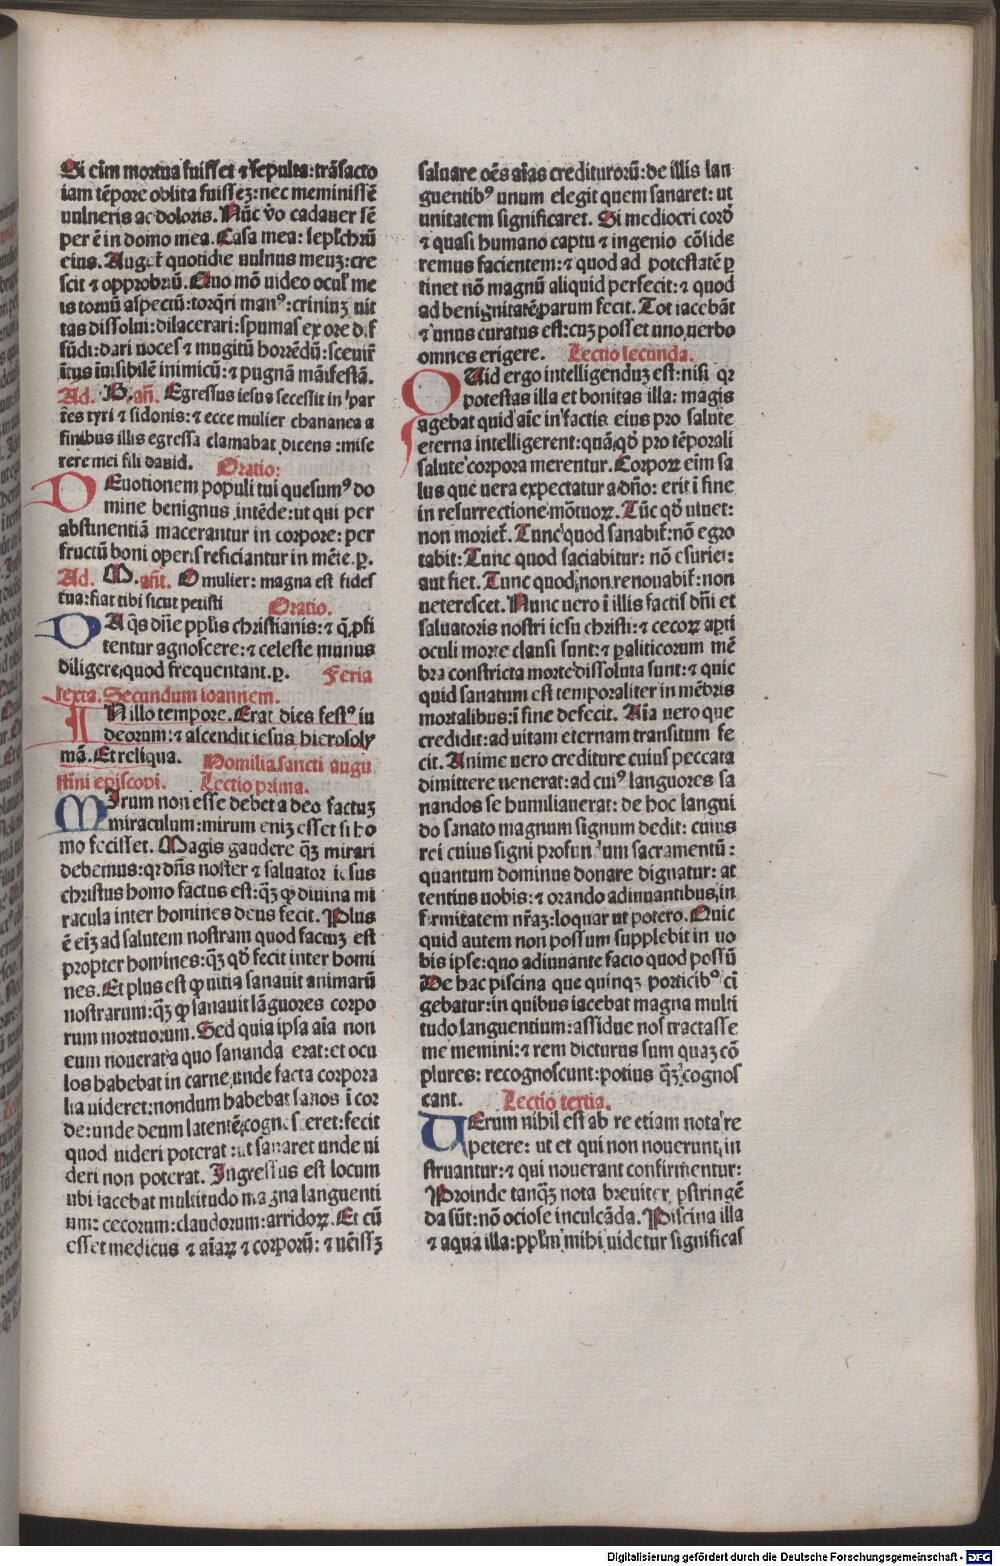 Si eĩm mortua fuisset ⁊ sepulta: trãsacto
iam tẽpore oblita fuissez: nec meminissẽ
uulneris ac doloris. Nũc v̾o cadauer sẽ
per ẽ in domo mea. Casa mea: sepl̾chrũ
eius. Auget̾ quotidie uulnus meuz: cre
scit ⁊ opprobriũ. Quo mõ uideo ocul̾ me
is toruũ aspectũ: torq̃ri manꝰ: criniuz uit
tas dissolui: dilacerari: spumas ex ore d
fũdi: dari uoces ⁊ mugitũ horrẽdũ: sceuir̾
ĩtus ĩuisibilẽ inimicũ: ⁊ pugnã mãifestã.
Ad. B. añ. Egressus iesus secessit in par
tẽs tyri ⁊ sidonis: ⁊ ecce mulier chananea a
finibus illis egressa clamabat dicens: mise
rere mei fili dauid. Oratio:
DEuotionem populi tui quesumꝰ do
mine benignus intẽde: ut qui per
abstinentiã macerantur in corpore: per
fructũ boni operis reficiantur in mẽte. p.
Ad. M. añt. O mulier: magna est fides
tua: fiat tibi sicut petisti Oratio.
DA q̃s dñe ppl̾is christianis: ⁊ q̃ ꝓfi
tentur agnoscere: ⁊ celeste munus
diligere, quod frequentant. p. Feria
sexta. Secundum ioannem.
IN illo tempore. Erat dies festꝰ iu
deorum: ⁊ ascendit iesus hierosoly
mã. Et reliqua. Homilia sancti augu
stini episcopi. Lectio prima.
MIrum non esse debet a deo factuz
miraculum: mirum eniz esset si ho
mo fecisset. Magis gaudere q̃ʒ mirari
debemus: qꝛ dñs noster ⁊ saluator iesus
christus homo factus est: q̃ʒ ꝙ diuina mi
racula inter homines deus fecit. Plus
ẽ eiʒ ad salutem nostram quod factuʒ est
propter homines: q̃ʒ qð fecit inter homi
nes. Et plus est ꝙ uitia sanauit animarũ
nostrarum: q̃ʒ ꝙ sanauit lãguores corpo
rum mortuorum. Sed quia ipsa aĩa non
eum nouerat a quo sananda erat: et ocu
los habebat in carne, unde facta corpora
lia uideret: nondum habebat sanos ĩ cor
de: unde deum latentẽ cognosceret: fecit
quod uideri poterat: ut sanaret unde ui
deri non poterat. Ingressus est locum
ubi iacebat multitudo magna languenti
um: cecorum: claudorum: arridoꝝ. Et cũ
esset medicus ⁊ aĩaꝝ ⁊ corporũ: ⁊ uẽissʒ
saluare oẽs aĩas crediturorũ: de illis lan
guentibꝰ unum elegit quem sanaret: ut
unitatem significaret. Si mediocri corð
⁊ quasi humano captu ⁊ ingenio cõside
remus facientem: ⁊ quod ad potestatẽ ꝑ
tinet nõ magnũ aliquid perfecit: ⁊ quod
ad benignitatẽ parum fecit. Tot iacebãt
⁊ unus curatus est: cuʒ posset uno uerbo
omnes erigere. Lectio secunda.
QUid ergo intelligenduʒ est: nisi qꝛ
potestas illa et bonitas illa: magis
agebat quid aĩe in factis eius pro salute
eterna intelligerent: quã qð pro tẽporali
salute corpora merentur. Corpoꝝ eĩm sa
lus que uera expectatur a dño: erit ĩ fine
in resurrectione mõtuoꝝ. Tũc qð uiuet:
non moriet̾. Tunc quod sanabit̾: nõ egro
tabit: Tunc quod saciabitur: nõ esuriet:
aut siet. Tunc quod non renouabit̾: non
ueterescet. Nunc uero ĩ illis factis dñi et
saluatoris nostri iesu christi: ⁊ cecoꝝ apti
oculi morte clausi sunt: ⁊ paliticorum mẽ
bra constricta morte dissoluta sunt: ⁊ quic
quid sanatum est temporaliter in mẽbris
mortalibus: ĩ fine defecit. Aĩa uero que
credidit: ad uitam eternam transitum fe
cit. Anime uero crediture cuius peccata
dimittere uenerat: ad cuiꝰ languores sa
nandos se humiliauerat: de hoc langui
do sanato magnum signum dedit: cuius
rei cuius signi profundum sacramentũ:
quantum dominus donare dignatur: at
tentius uobis: ⁊ orando adiuuantibus, in
firmitatem nr̃aʒ: loquar ut potero. Quic
quid autem non possum supplebit in uo
bis ipse: quo adiuuante facio quod possũ
De hac piscina que quinqʒ porticibꝰ cĩ
gebatur: in quibus iacebat magna multi
tudo languentium: assidue nos tractasse
me memini: ⁊ rem dicturus sum quaʒ cõ
plures: recognoscunt: potius q̃ʒ cognos
cant. Lectio tertia.
UErum nihil est ab re etiam nota re
petere: ut et qui non nouerunt, in
struantur: ⁊ qui nouerant confirmentur:
Proinde tanq̃ʒ nota breuiter ꝑstringẽ
da sũt: nõ ociose inculcãda. Piscina illa
⁊ aqua illa: ppl̾m mihi uidetur significas
Digitalisierung gefördert durch die Deutsche Forschungsgemeinschaft - DFG